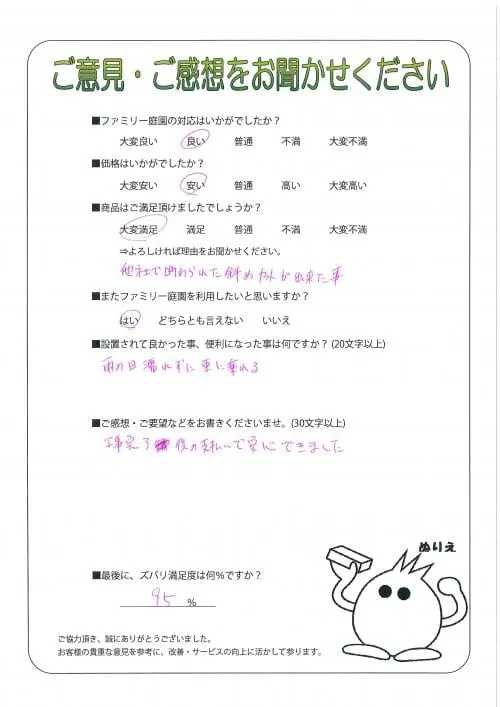 ご意見・ご感想をお聞かせください
■ファミリー庭園の対応はいかがでしたか？
大変良い 良い 普通 不満 大変不満
■価格はいかがでしたか？
大変安い 安い 普通 高い 大変高い
■商品はご満足頂けましたでしょうか？
大変満足 満足 普通 不満 大変不満
⇒よろしければ理由をお聞かせください。
他社で断わられた斜めカットが出来た事
■またファミリー庭園を利用したいと思いますか？
はい どちらとも言えない いいえ
■設置されて良かった事、便利になった事は何ですか？(20文字以上)
雨の日濡れずに車に乗れる
■ご感想・ご要望などをお書きくださいませ。(30文字以上)
工事完了後の支払いで安心できました
ぬりえ
■最後に、ズバリ満足度は何％ですか？
95 ％
ご協力頂き、誠にありがとうございました。
お客様の貴重な意見を参考に、改善・サービスの向上に活かして参ります。